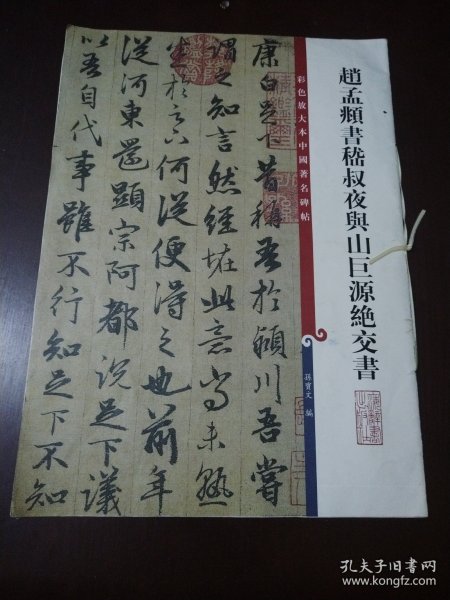 趙孟頫書嵇叔夜與山巨源絶交書
彩色放大本中國著名碑帖
孫寶文 編
康白足下昔稱吾於潁川吾嘗
謂之知言然經怪此意尚未熟
悉於足下何從便得之也前年
從河東還顯宗阿都說足下議
以吾自代事雖不行知足下不知
孔夫子旧书网
www.kongfz.com